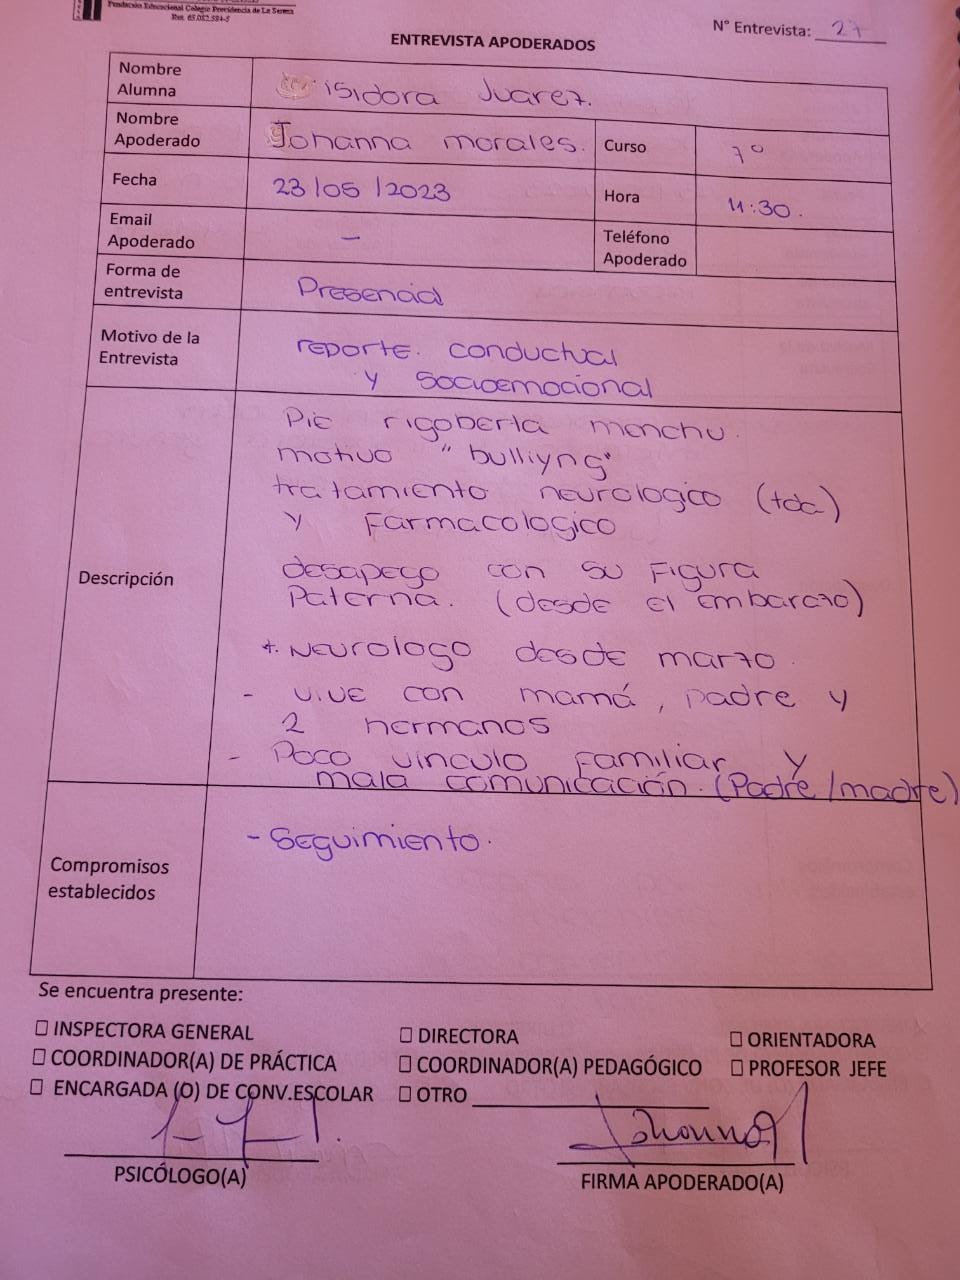 Fundación Educacional Colegio Providencia de La Serena
Rut. 65.052.584-5
N° Entrevista: 27
ENTREVISTA APODERADOS
Nombre Alumna isidora Juarez.
Nombre Apoderado Johanna morales. Curso 7°
Fecha 23/05/2023 Hora 11:30.
Email Apoderado - Teléfono Apoderado
Forma de entrevista Presencial
Motivo de la Entrevista reporte. conductual
y socioemocional
Descripción
Pie rigoberta menchu.
motivo "bulliyng"
tratamiento neurologico (tda)
y Farmacologico
desapego con su Figura
Paterna. (desde el embarazo)
*. Neurologo desde marzo.
- vive con mamá, padre y
2 hermanos
- Poco vinculo Familiar y
mala comunicación. (Padre/madre)
Compromisos establecidos - Seguimiento.
Se encuentra presente:
☐ INSPECTORA GENERAL ☐ DIRECTORA ☐ ORIENTADORA
☐ COORDINADOR(A) DE PRÁCTICA ☐ COORDINADOR(A) PEDAGÓGICO ☐ PROFESOR JEFE
☐ ENCARGADA (O) DE CONV.ESCOLAR ☐ OTRO
Johanna
PSICÓLOGO(A) FIRMA APODERADO(A)